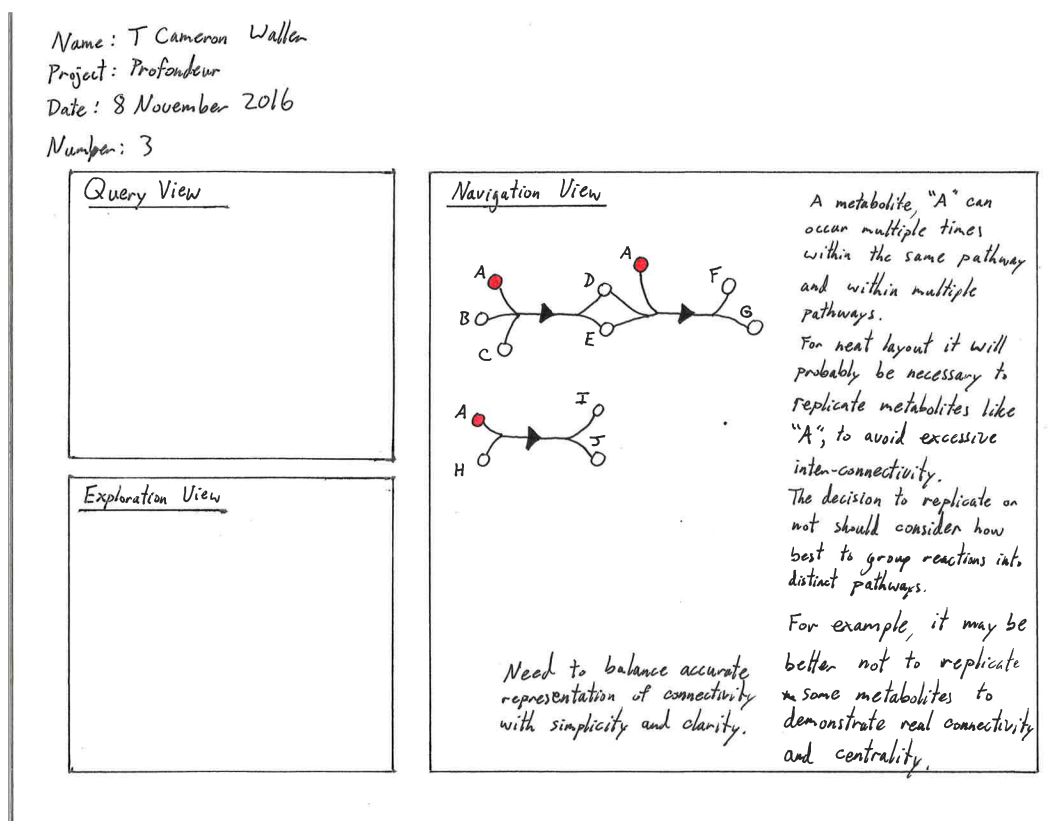 Name: T Cameron Waller
Project: Profondeur
Date: 8 November 2016
Number: 3
Query View
Exploration View
Navigation View
A
A
B
C
D
E
F
G
A
H
I
J
A metabolite, "A" can
occur multiple times
within the same pathway
and within multiple
pathways.
For neat layout it will
probably be necessary to
replicate metabolites like
"A", to avoid excessive
inter-connectivity.
The decision to replicate or
not should consider how
best to group reactions into
distinct pathways.
For example, it may be
better not to replicate
some metabolites to
demonstrate real connectivity
and centrality.
Need to balance accurate
representation of connectivity
with simplicity and clarity.